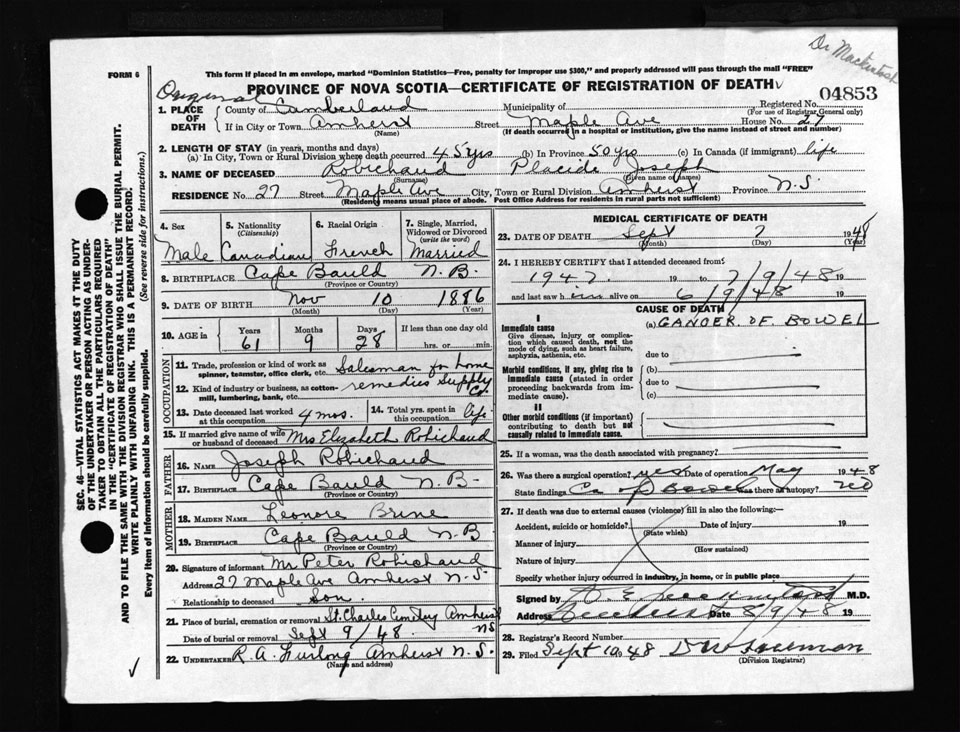 Dr Mackintosh
FORM 6
This form if placed in an envelope, marked "Dominion Statistics—Free, penalty for improper use $300," and properly addressed will pass through the mail "FREE"
Original
PROVINCE OF NOVA SCOTIA—CERTIFICATE OF REGISTRATION OF DEATH
04853
1. PLACE OF DEATH
County of Cumberland Municipality of Registered No.
(For use of Registrar General only)
If in City or Town Amherst Street Maple Ave House No. 27
(Name) (If death occurred in a hospital or institution, give the name instead of street and number)
2. LENGTH OF STAY (in years, months and days)
(a) In City, Town or Rural Division where death occurred 45 yrs (b) In Province 50 yrs (c) In Canada (if immigrant) life
3. NAME OF DECEASED Robichaud Placide Joseph
(Surname) (Given name or names)
RESIDENCE No. 27 Street Maple Ave City, Town or Rural Division Amherst Province N.S.
(Residency means usual place of abode. Post Office Address for residents in rural parts not sufficient)
4. Sex 5. Nationality (Citizenship) 6. Racial Origin 7. Single, Married, Widowed or Divorced (write the word)
Male Canadian French Married
8. BIRTHPLACE Cape Bauld N.B.
(Province or Country)
9. DATE OF BIRTH Nov 10 1886
(Month) (Day) (Year)
10. AGE in Years Months Days If less than one day old
61 9 28 hrs. or min.
OCCUPATION
11. Trade, profession or kind of work as spinner, teamster, office clerk, etc. Salesman for home
12. Kind of industry or business, as cotton-mill, lumbering, bank, etc. remedies supply Co.
13. Date deceased last worked at this occupation 4 mos. 14. Total yrs. spent in this occupation life
15. If married give name of wife or husband of deceased Mrs Elizabeth Robichaud
FATHER
16. NAME Joseph Robichaud
17. BIRTHPLACE Cape Bauld N.B-
(Province or Country)
MOTHER
18. MAIDEN NAME Leonore Brine
19. BIRTHPLACE Cape Bauld N.B
(Province or Country)
20. Signature of informant Mr Peter Robichaud
Address 27 Maple Ave Amherst N.S.
Relationship to deceased Son.
21. Place of burial, cremation or removal St. Charles Cemetery Amherst NS
Date of burial or removal Sept 9/48.
22. UNDERTAKER R.A. Furlong Amherst N.S.
(Name and address)
MEDICAL CERTIFICATE OF DEATH
23. DATE OF DEATH Sept 7 1948
(Month) (Day) (Year)
24. I HEREBY CERTIFY that I attended deceased from
1947. 19 to 7/9/48 19
and last saw him alive on 6/9/48 19
CAUSE OF DEATH
I
Immediate cause (a) CANCER OF BOWEL
Give disease, injury or complication which caused death, not the mode of dying, such as heart failure, asphyxia, asthenia, etc.
due to
(b)
Morbid conditions, if any, giving rise to immediate cause (stated in order proceeding backwards from immediate cause).
due to
(c)
II
Other morbid conditions (if important) contributing to death but not causally related to immediate cause.
25. If a woman, was the death associated with pregnancy?
26. Was there a surgical operation? yes Date of operation May 1948
State findings Ca of Bowel Was there autopsy? no
27. If death was due to external causes (violence) fill in also the following:—
Accident, suicide or homicide? Date of injury 19
(State which)
Manner of injury
(How sustained)
Nature of injury
Specify whether injury occurred in industry, in home, or in public place
Signed by M.D.
Address Amherst Date 8/9/48 19
28. Registrar's Record Number
29. Filed Sept 10 1948
(Division Registrar)
SEC. 46—VITAL STATISTICS ACT MAKES IT THE DUTY
OF THE UNDERTAKER OR PERSON ACTING AS UNDER-
TAKER TO OBTAIN ALL THE PARTICULARS REQUIRED
IN THE "CERTIFICATE OF REGISTRATION OF DEATH"
AND TO FILE THE SAME WITH THE DIVISION REGISTRAR WHO SHALL ISSUE THE BURIAL PERMIT.
WRITE PLAINLY WITH UNFADING INK. THIS IS A PERMANENT RECORD.
Every item of information should be carefully supplied. (See reverse side for instructions.)